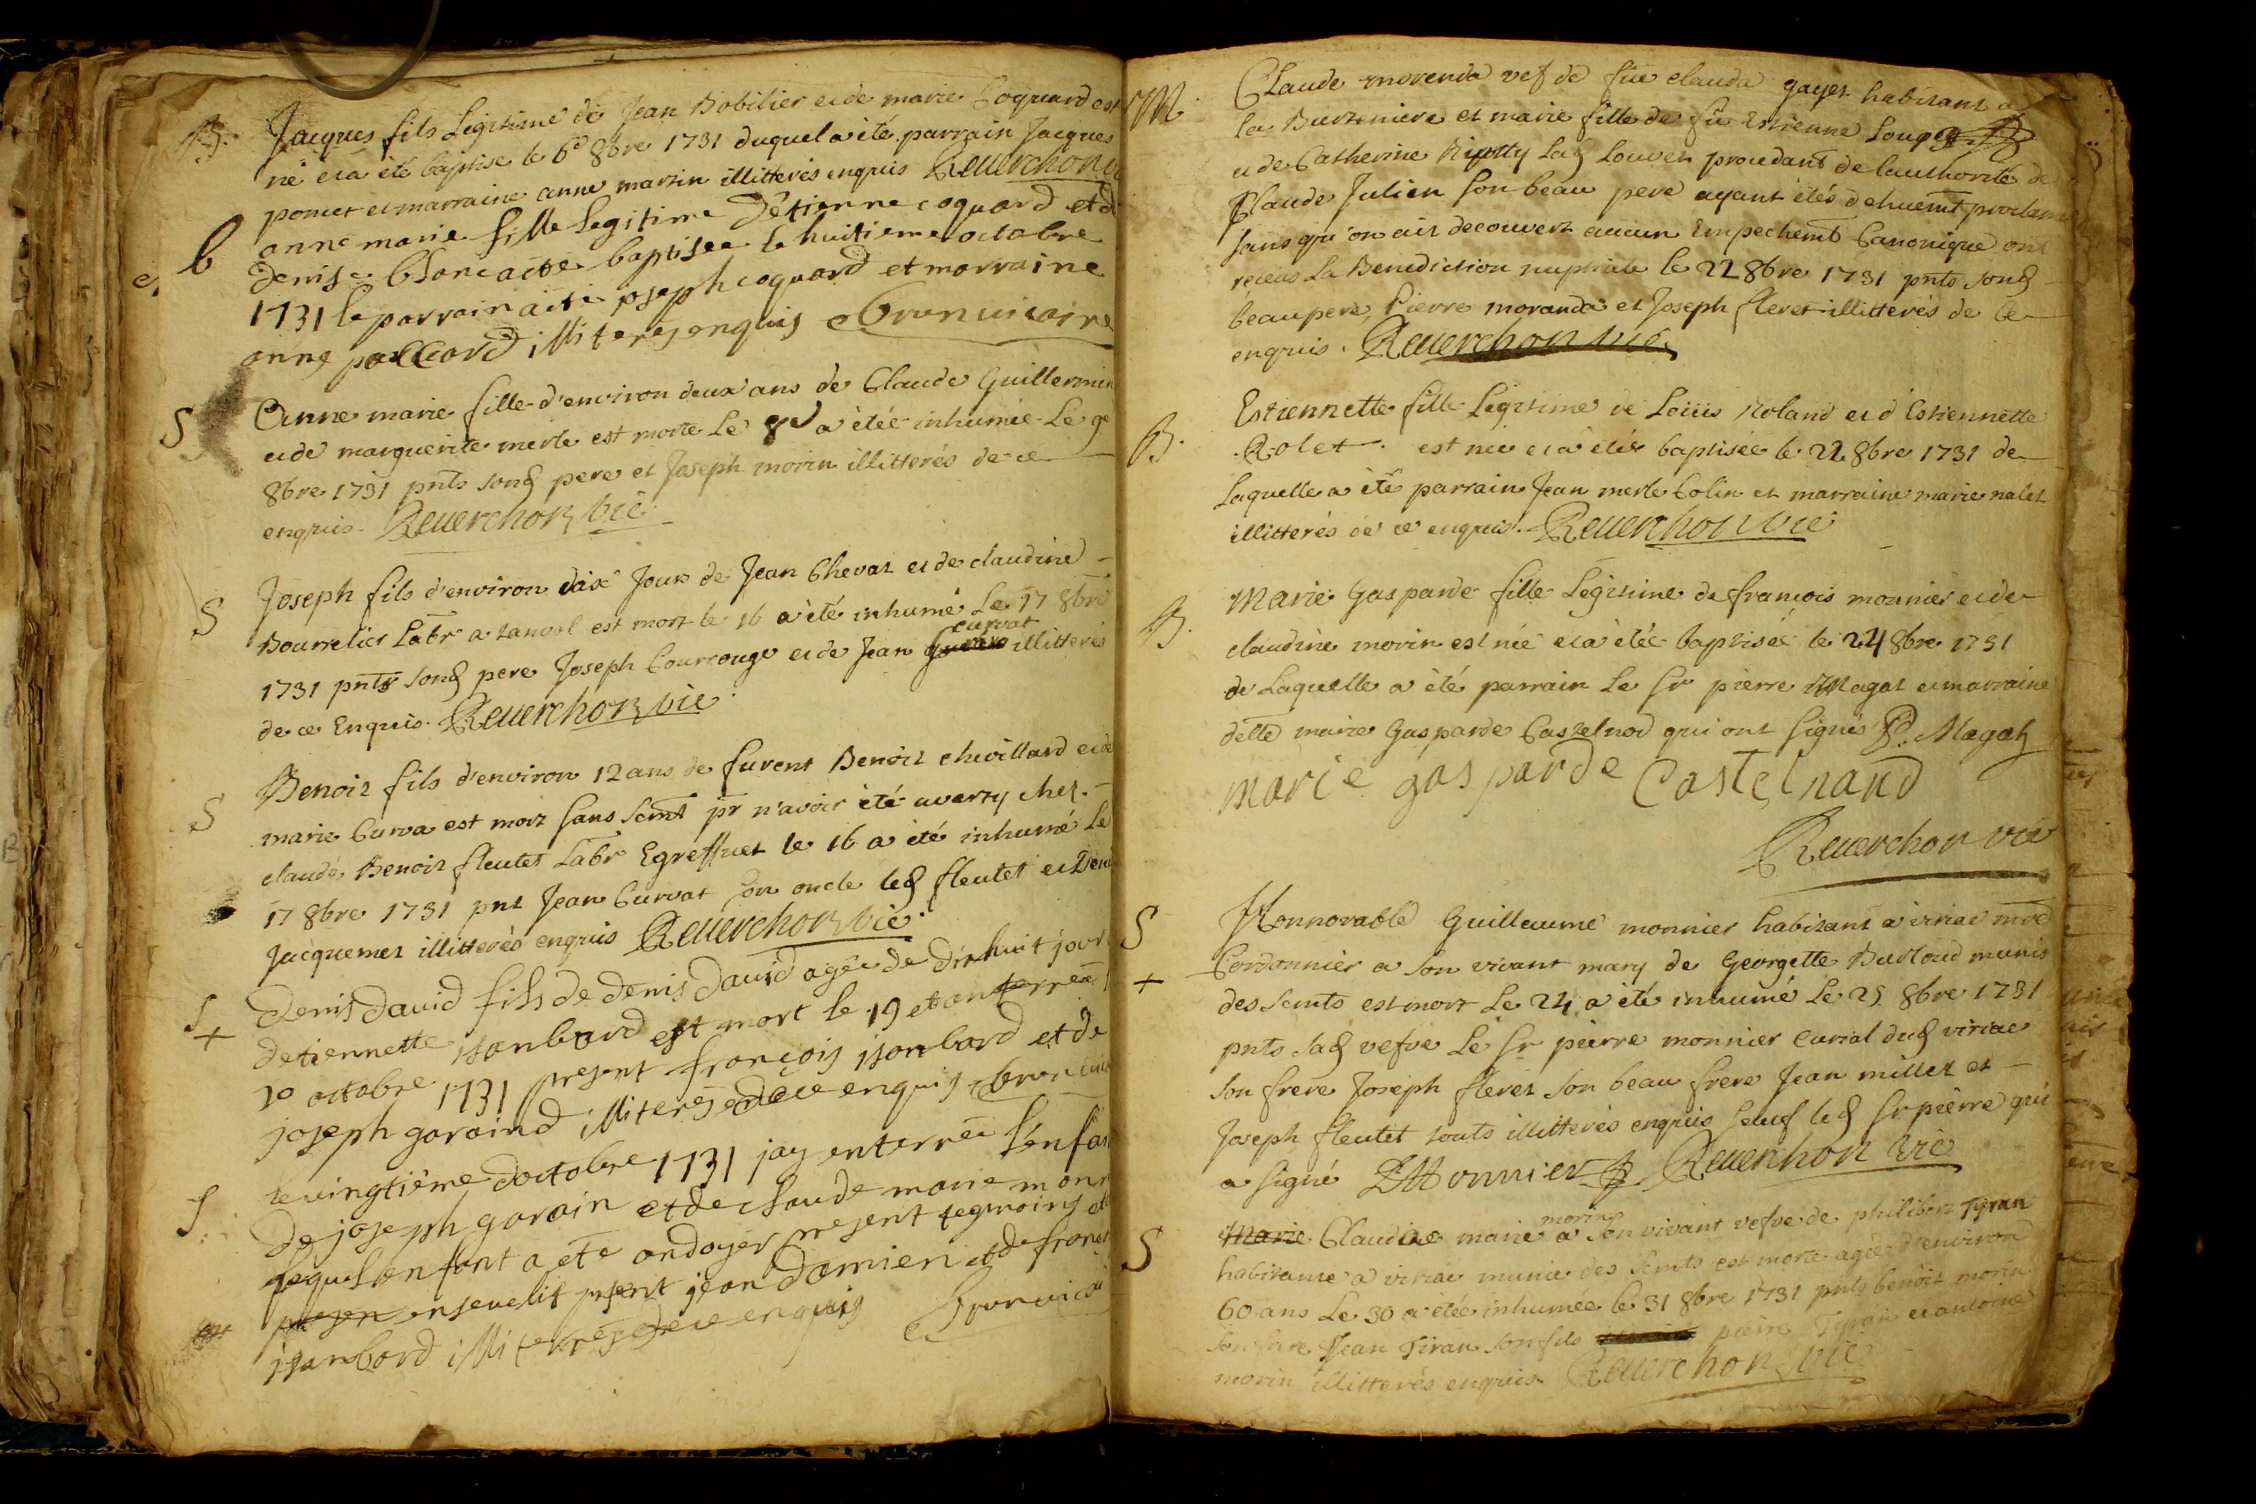 B. Jacques fils Legitime de Jean Bobilier et de marie Coquard est
né et a été baptise le 6e 8bre 1731 duquel a été parrain Jacques
poncet et marraine anne martin illitterés enquis Reuerchon
b anne marie fille legitime d'étienne coquard et de
denise a été baptisee le huitieme octobre
1731 le parrain a été joseph coquard et marraine
anne paccard illiteres enquis brun vicaire
S Anne marie fille d'environ deux ans de Claude Guillermin
et de marguerite merle est morte Le 8e a étéé inhumée Le 9e
8bre 1731 pnts sond pere et Joseph morin illitterés de ce
enquis. Reuerchon vic
S Joseph fils d'environ dix Jours de Jean Chevat et de claudine
Bourrelier Labr a est mort le 16 a été inhumé Le 17 8bre
curvat
1731 pnts sond pere Joseph Courrouge et de Jean illitterés
de ce Enquis. Reuerchon vic
S Benoit fils d'environ 12 ans de furent Benoit chivillard et de
marie Curva est mort sans Scmt pr n'avoir été averty chez
claude Benoit fleutet Labr Egreffuet le 16 a été inhumé Le
17 8bre 1731 pnt Jean Curvat son oncle led fleutet et
Jacquemet illitterés enquis Reuerchon vic
S + denis david fils de denis david agée de dixhuit jour
detiennette isanbard est mort le 19 et anterreé
20 octobre 1731 present françois isanbard et de
joseph garaind illiteres de ce enquis brun
S. le vingtième doctobre 1731 jay enterrée l'enfan
de joseph garain et de claude marie monn
lequel enfant a été ondoyer present tegmoins
presen ensevelit present jean damien et de franc
isanbard illiterrés de ce enquis brun vicai
M. Claude morenda vef de fue clauda gayet habitant a
la Burtiniere et marie fille de fu Estienne Louvet
et de Catherine lad Louvet procedant de lauthorité de
Claude Julien son beau pere ayant étés dehuemt proclamé
sans qu'on ait decouvert aucun Empechemt Canonique ont
receus La Benediction nuptiale le 22 8bre 1731 pnts sond
beaupere, Pierre moranda et Joseph fleret illitterés de ce
enquis. Reuerchon vic
B. Estiennette fille Legitime de Loüis Roland et d'Estiennette
Rolet est née et a étéé baptisée le 22 8bre 1731 de
Laquelle a été parrain Jean merle Colin et marraine marie nalet
illitterés de ce enquis. Reuerchon vic
B. Marie Gasparde fille Legitime de francois monnier et de
claudine morin est née et a étéé baptisée le 24 8bre 1731
de Laquelle a été parrain Le Sr pierre Magat et marraine
delle marie Gasparde Castelnod qui ont signés P. Magat
marie gasparde Castelnaud
Reuerchon vic
S + Honnorable Guillaume monnier habitant a viriac mre
Cordonnier a son vivant mary de Georgette Burtoud munis
des Scmts est mort Le 24 a été inhumé Le 25 8bre 1731
pnts Sad vefve Le Sr pierre monnier curial dud viriac
son frere Joseph fleret son beau frere Jean millet et
Joseph fleutet touts illitterés enquis Sauf led Sr pierre qui
a signé Monnier Reuerchon vic
morin
S Marie Claudine marie a son vivant vefve de philibert Tyran
habitante a viriac munie des Scmts est morte agée d'environ
60 ans Le 30 a étée inhumée le 31 8bre 1731 pnts benoit morin
son frere Jean Tiran son fils pierre Tyran et antoine
morin illitterés enquis Reuerchon vic